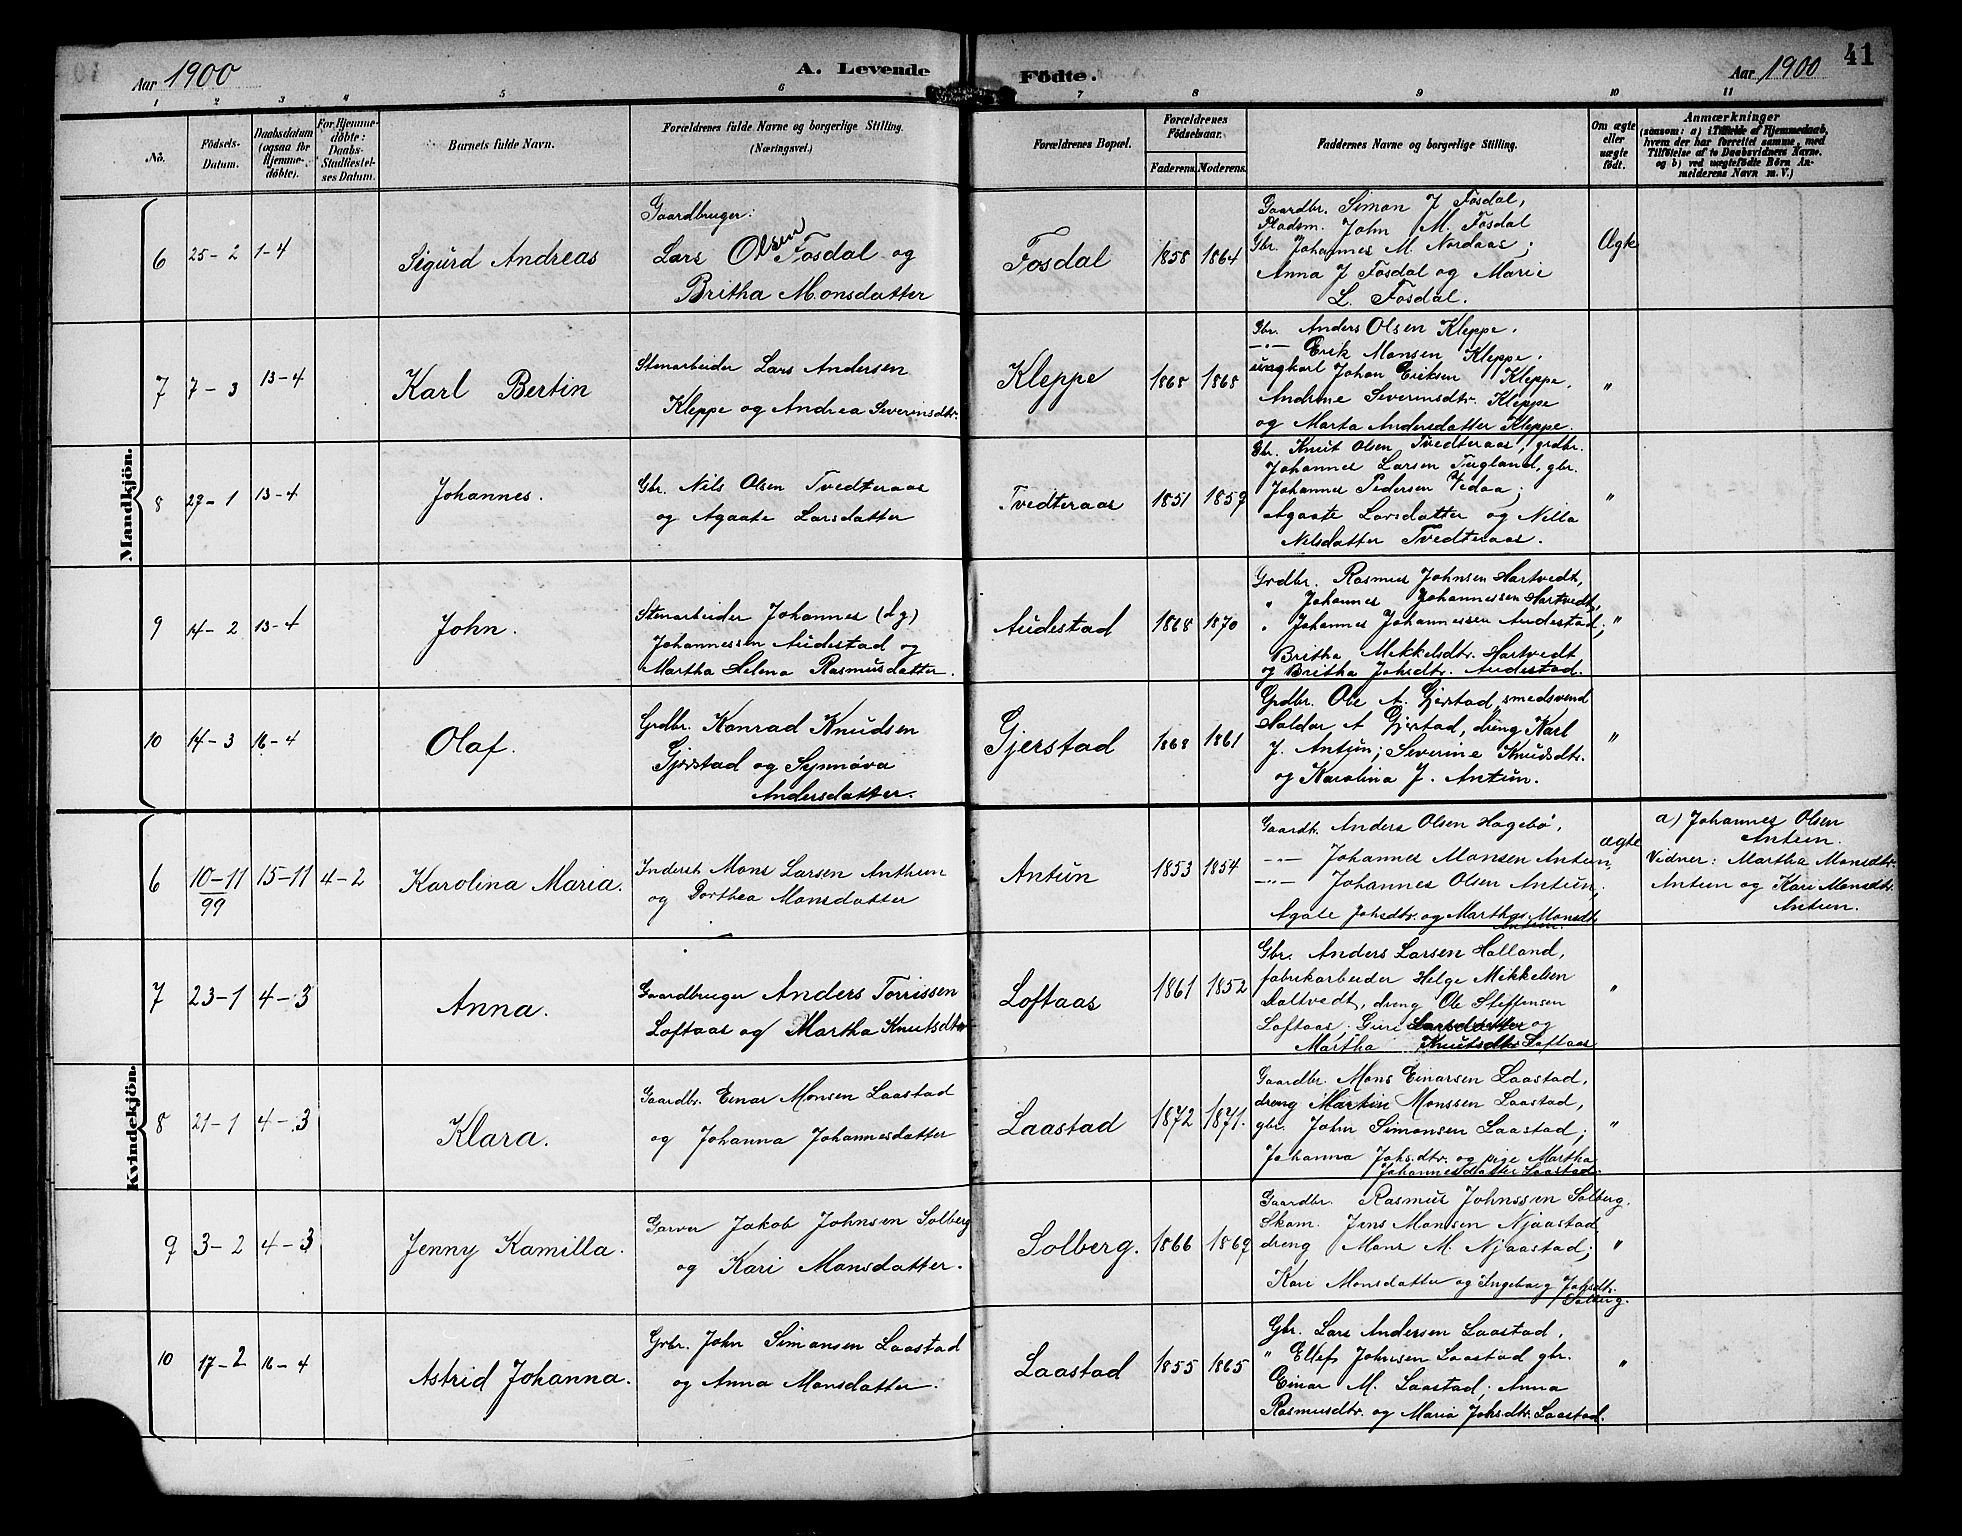 Aar 1900
A. Levende
Födte.
Aar 1900
41
1 2 3 4 5 6 7 8 9 10 11
No.
Födsels-
Datum.
Daabsdatum
(ogsaa for
Hjemme-
döbte).
For Hjemme-
döbte:
Daabs-
Stadfæstel-
ses Datum.
Barnets fulde Navn.
Forældrenes fulde Navne og borgerlige Stilling.
(Næringsvei.)
Forældrenes Bopæl.
Forældrenes
Födselsaar.
Faderens. Moderens.
Faddernes Navne og borgerlige Stilling.
Om ægte
eller
uægte
födt.
Anmærkninger
(saasom: a) i Tilfælde af Hjemmedaab,
hvem der har forrettet samme, med
Tilföielse af to Daabsvidners Navne.
og b) ved uægtefödte Börn An-
melderens Navn m. V.)
Mandkjön.
6 25-2 1-4
Sigurd Andreas
Gaardbruger:
Lars Olsen Fosdal og
Britha Monsdatter
Fosdal
1858 1864
Gaardbr. Simon J Fosdal,
Pladsm. John M. Fosdal
Gbr. Johannes M. Nordaas;
Anna J Fosdal og Marie
L. Fosdal.
Ægte
7 7-3 13-4
Karl Bertin
Stenarbeider Lars Andersen
Kleppe og Andrea Severinsdtr.
Kleppe
1868 1868
Gbr. Anders Olsen Kleppe.
-"- Erik Monsen Kleppe.
ungkarl Johan Eriksen Kleppe.
Andrine Severinsdtr. Kleppe
og Marta Andersdatter Kleppe.
"
8 27-1 13-4
Johannes.
Gbr. Nils Olsen Tvedteraas
og Agaate Larsdatter
Tvedteraas
1851 1859
Gbr. Knut Olsen Tvedteraas, grdbr.
Johannes Larsen Tugland, gbr.
Johannes Pedersen Vedaa;
Agaate Larsdatter og Nilla
Nilsdatter Tvedteraas.
"
9 14-2 13-4
John.
Stenarbeider Johannes (d.y)
Johannessen Audestad og
Martha Helena Rasmusdatter.
Audestad
1868 1870
Grdbr. Rasmus Johnsen Hartvedt,
" Johannes Johannessen Hartvedt,
" Johannes Johannessen Audestad;
Britha Mikkelsdtr. Hartvedt
og Britha Johsdtr. Audestad.
"
10 14-3 16-4
Olaf.
Grdbr. Konrad Knudsen
Gjerstad og Synnöva
Andersdatter.
Gjerstad
1868 1861
Grdbr. Ole A. Gjerstad, smedsvend
Haldor A Gjerstad, dreng Karl
J. Antun; Severine Knudsdtr.
og Karolina J. Antun.
"
Kvindekjön.
6 10-11/99 15-11 4-2
Karolina Maria.
Inderst Mons Larsen Anthun
og Dorthea Monsdatter
Antun
1853 1854
Gaardb. Anders Olsen Hagebö,
-"- Johannes Monsen Antun
-"- Johannes Olsen Antun,
Agate Johsdtr. og Martha Monsdtr.
Antun.
ægte
a) Johannes Olsen
Antun.
Vidner: Martha Monsdtr.
Antun og Kari Monsdtr.
Antun.
7 23-1 4-3
Anna.
Gaardbruger Anders Torrissen
Loftaas og Martha Knutsdtr
Loftaas
1861 1852
Gbr. Anders Larsen Halland,
fabrikarbeider Helge Mikkelsen
Daltvedt, dreng Ole Steffensen
Loftaas, Guri Larsdatter og
Martha Knutsdtr Loftaas
"
8 21-1 4-3
Klara.
Gaardbr. Einar Monsen Laastad
og Johanna Johannesdatter
Laastad
1872 1871.
Gaardbr. Mons Einarsen Laastad,
dreng Martin Monssen Laastad,
gbr. John Simonsen Laastad;
Johanna Johsdtr. og pige Martha
Johannesdatter Laastad.
"
9 3-2 4-3
Jenny Kamilla.
Garver Jakob Johnsen Solberg
og Kari Monsdatter.
Solberg.
1866 1869
Gaardbr. Rasmus Johnssen Solberg.
Skom. Jens Monsen Njaastad
dreng Mons M. Njaastad;
Kari Monsdatter og Ingeborg Johsdtr.
Solberg.
"
10 17-2 16-4
Astrid Johanna.
Grbr. John Simonsen Laastad
og Anna Monsdatter.
Laastad
1855 1865
Gbr. Lars Andersen Laastad,
" Ellef Johnsen Laastad gbr.
Einar M. Laastad; Anna
Rasmusdtr. og Maria Johsdtr. Laastad.
"